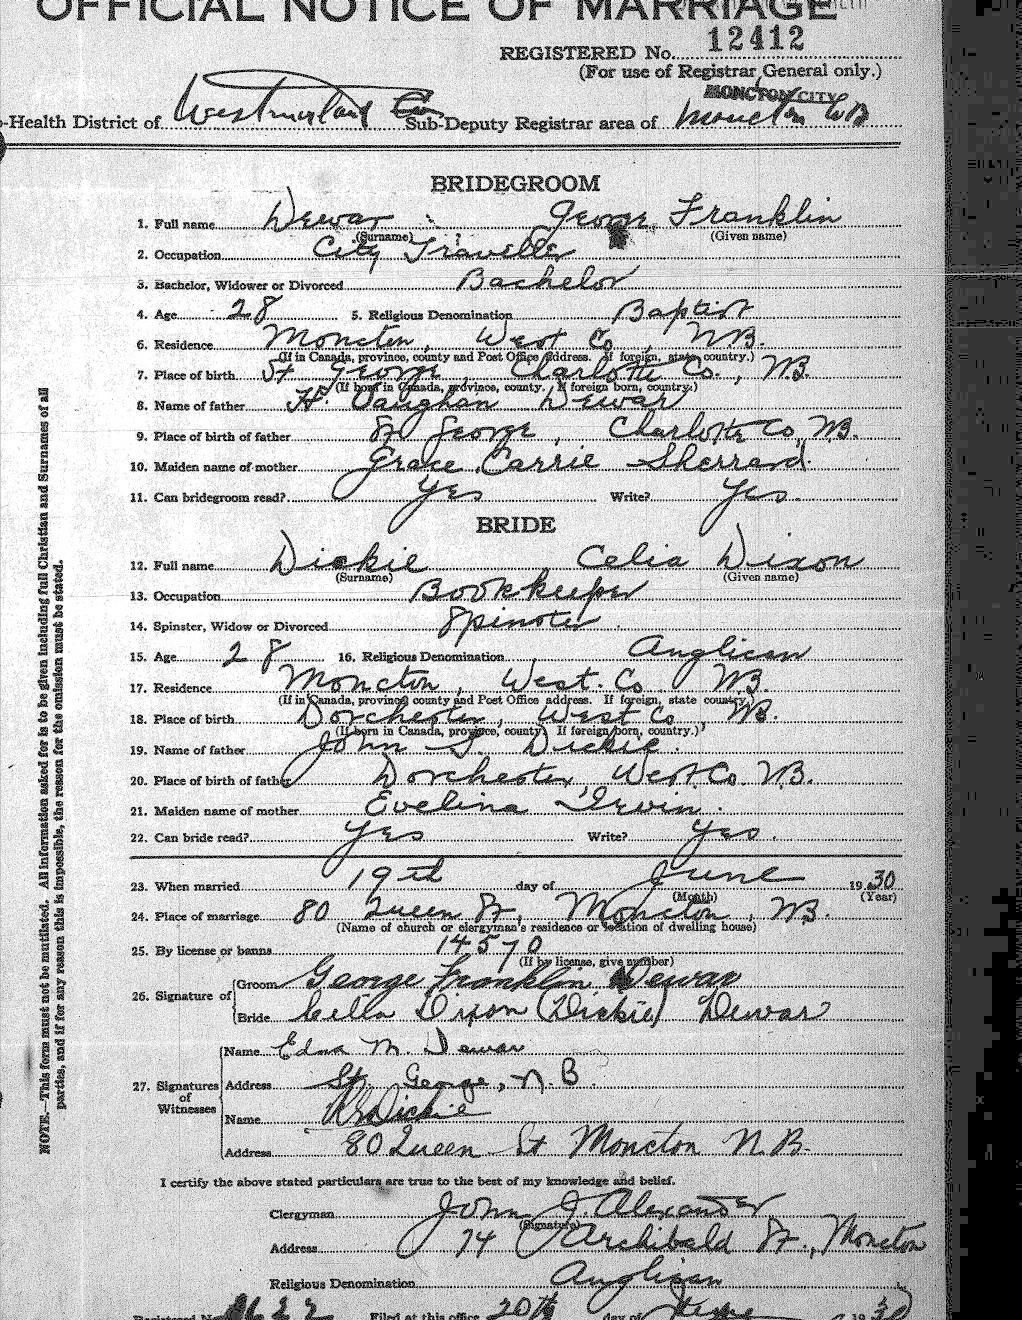 OFFICIAL NOTICE OF MARRIAGE
REGISTERED No. 12412
(For use of Registrar General only.)
MONCTON CITY
-Health District of Westmorland Co Sub-Deputy Registrar area of Moncton NB
BRIDEGROOM
1. Full name Dewar George Franklin
(Surname) (Given name)
2. Occupation City Traveller
3. Bachelor, Widower or Divorced Bachelor
4. Age 28 5. Religious Denomination Baptist
6. Residence Moncton, West Co NB.
(If in Canada, province, county and Post Office address. If foreign, state country.)
7. Place of birth St George, Charlotte Co., NB.
(If born in Canada, province, county. If foreign born, country.)
8. Name of father H. Vaughan Dewar
9. Place of birth of father St George, Charlotte Co, NB.
10. Maiden name of mother Grace Carrie Sherrard.
11. Can bridegroom read? Yes Write? Yes.
BRIDE
12. Full name Dickie Celia Dixon
(Surname) (Given name)
13. Occupation Bookkeeper
14. Spinster, Widow or Divorced Spinster
15. Age 28 16. Religious Denomination Anglican
17. Residence Moncton, West. Co NB.
(If in Canada, province, county and Post Office address. If foreign, state country.)
18. Place of birth Dorchester, West Co, NB.
(If born in Canada, province, county. If foreign born, country.)
19. Name of father John S. Dickie.
20. Place of birth of father Dorchester, West Co. NB.
21. Maiden name of mother Evelina Irvin.
22. Can bride read? Yes Write? Yes.
23. When married 19th day of June 1930
(Month) (Year)
24. Place of marriage 80 Queen St, Moncton, NB.
(Name of church or clergyman's residence or location of dwelling house)
25. By license or banns 14570
(If by license, give number)
26. Signature of Groom George Franklin Dewar
Bride Celia Dixon (Dickie) Dewar
27. Signatures of Witnesses
Name Edna M. Dewar
Address St. George, N.B.
Name Dickie
Address 80 Queen St Moncton N.B.
I certify the above stated particulars are true to the best of my knowledge and belief.
Clergyman John J. Alexander
(Signature)
Address 74 Archibald St., Moncton
Religious Denomination Anglican
Filed at this office 20th day of June 1930
NOTE.—This form must not be mutilated. All information asked for is to be given including full Christian and Surnames of all
parties, and if for any reason this is impossible, the reason for the omission must be stated.